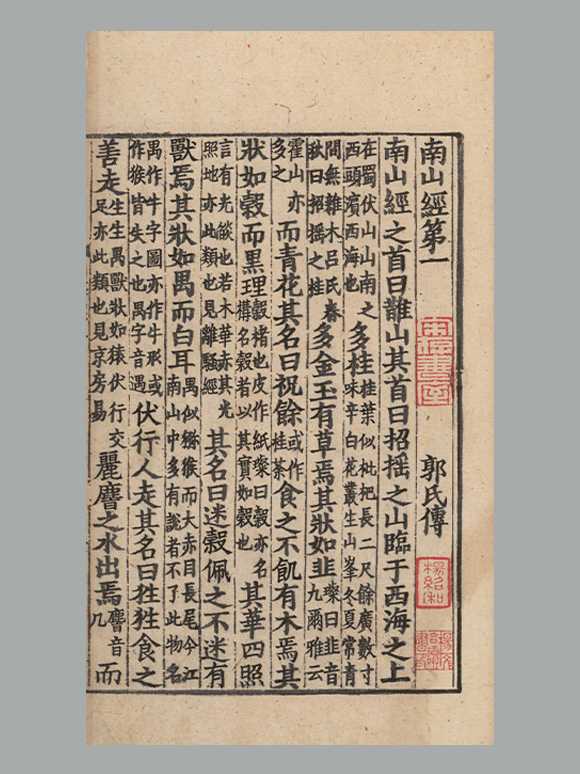 南山經第一
宋存書室
郭氏傳
楊紹和
南山經之首曰䧿山其首曰招搖之山臨于西海之上
在蜀伏山山南之
西頭濱西海也
多桂
桂葉似枇杷長二尺餘廣數寸
味辛白花叢生山峯冬夏常青
間無雜木呂氏春
秋曰招搖之桂
多金玉有草焉其狀如韭
璨曰韭音
九爾雅云
霍山亦
多之
而青花其名曰祝餘
或作
桂荼
食之不飢有木焉其
狀如榖而黑理
榖楮也皮作紙璨曰榖亦名
構名榖者以其實如榖也
其華四照
言有光燄也若木華赤其光
照地亦此類也見離騷經
其名曰迷榖佩之不迷有
獸焉其狀如禺而白耳
禺似獼猴而大赤目長尾今江
南山中多有說者不了此物名
禺作牛字圖亦作牛形或
作猴皆失之也禺字音遇
伏行人走其名曰狌狌食之
善走
生生禺獸狀如猿伏行交
足亦此類也見京房易
麗𪊨之水出焉
𪊨音
几
而